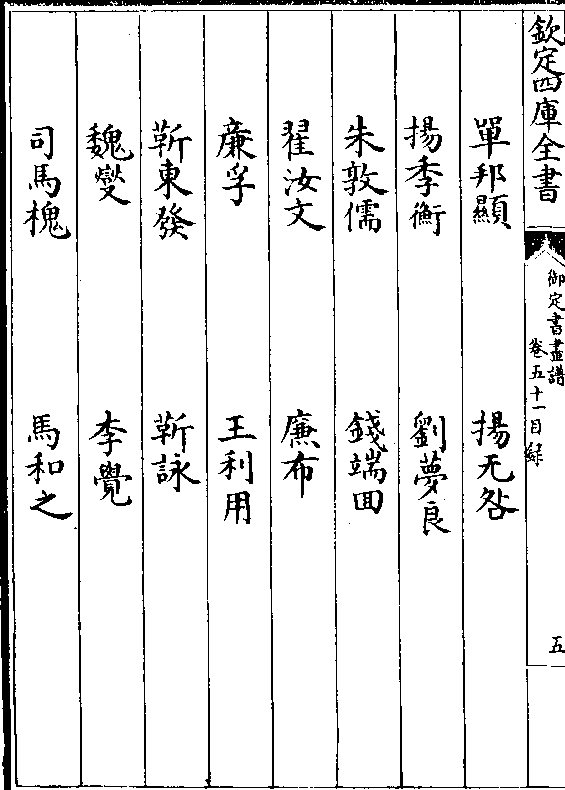 欽定四庫全書
御定書畫譜
卷五十一目録
五
單邦顯 揚无咎
揚季衡 劉夢良
朱敦儒 錢端回
翟汝文 廉布
廉孚 王利用
靳東發 靳詠
魏燮 李覺
司馬槐 馬和之